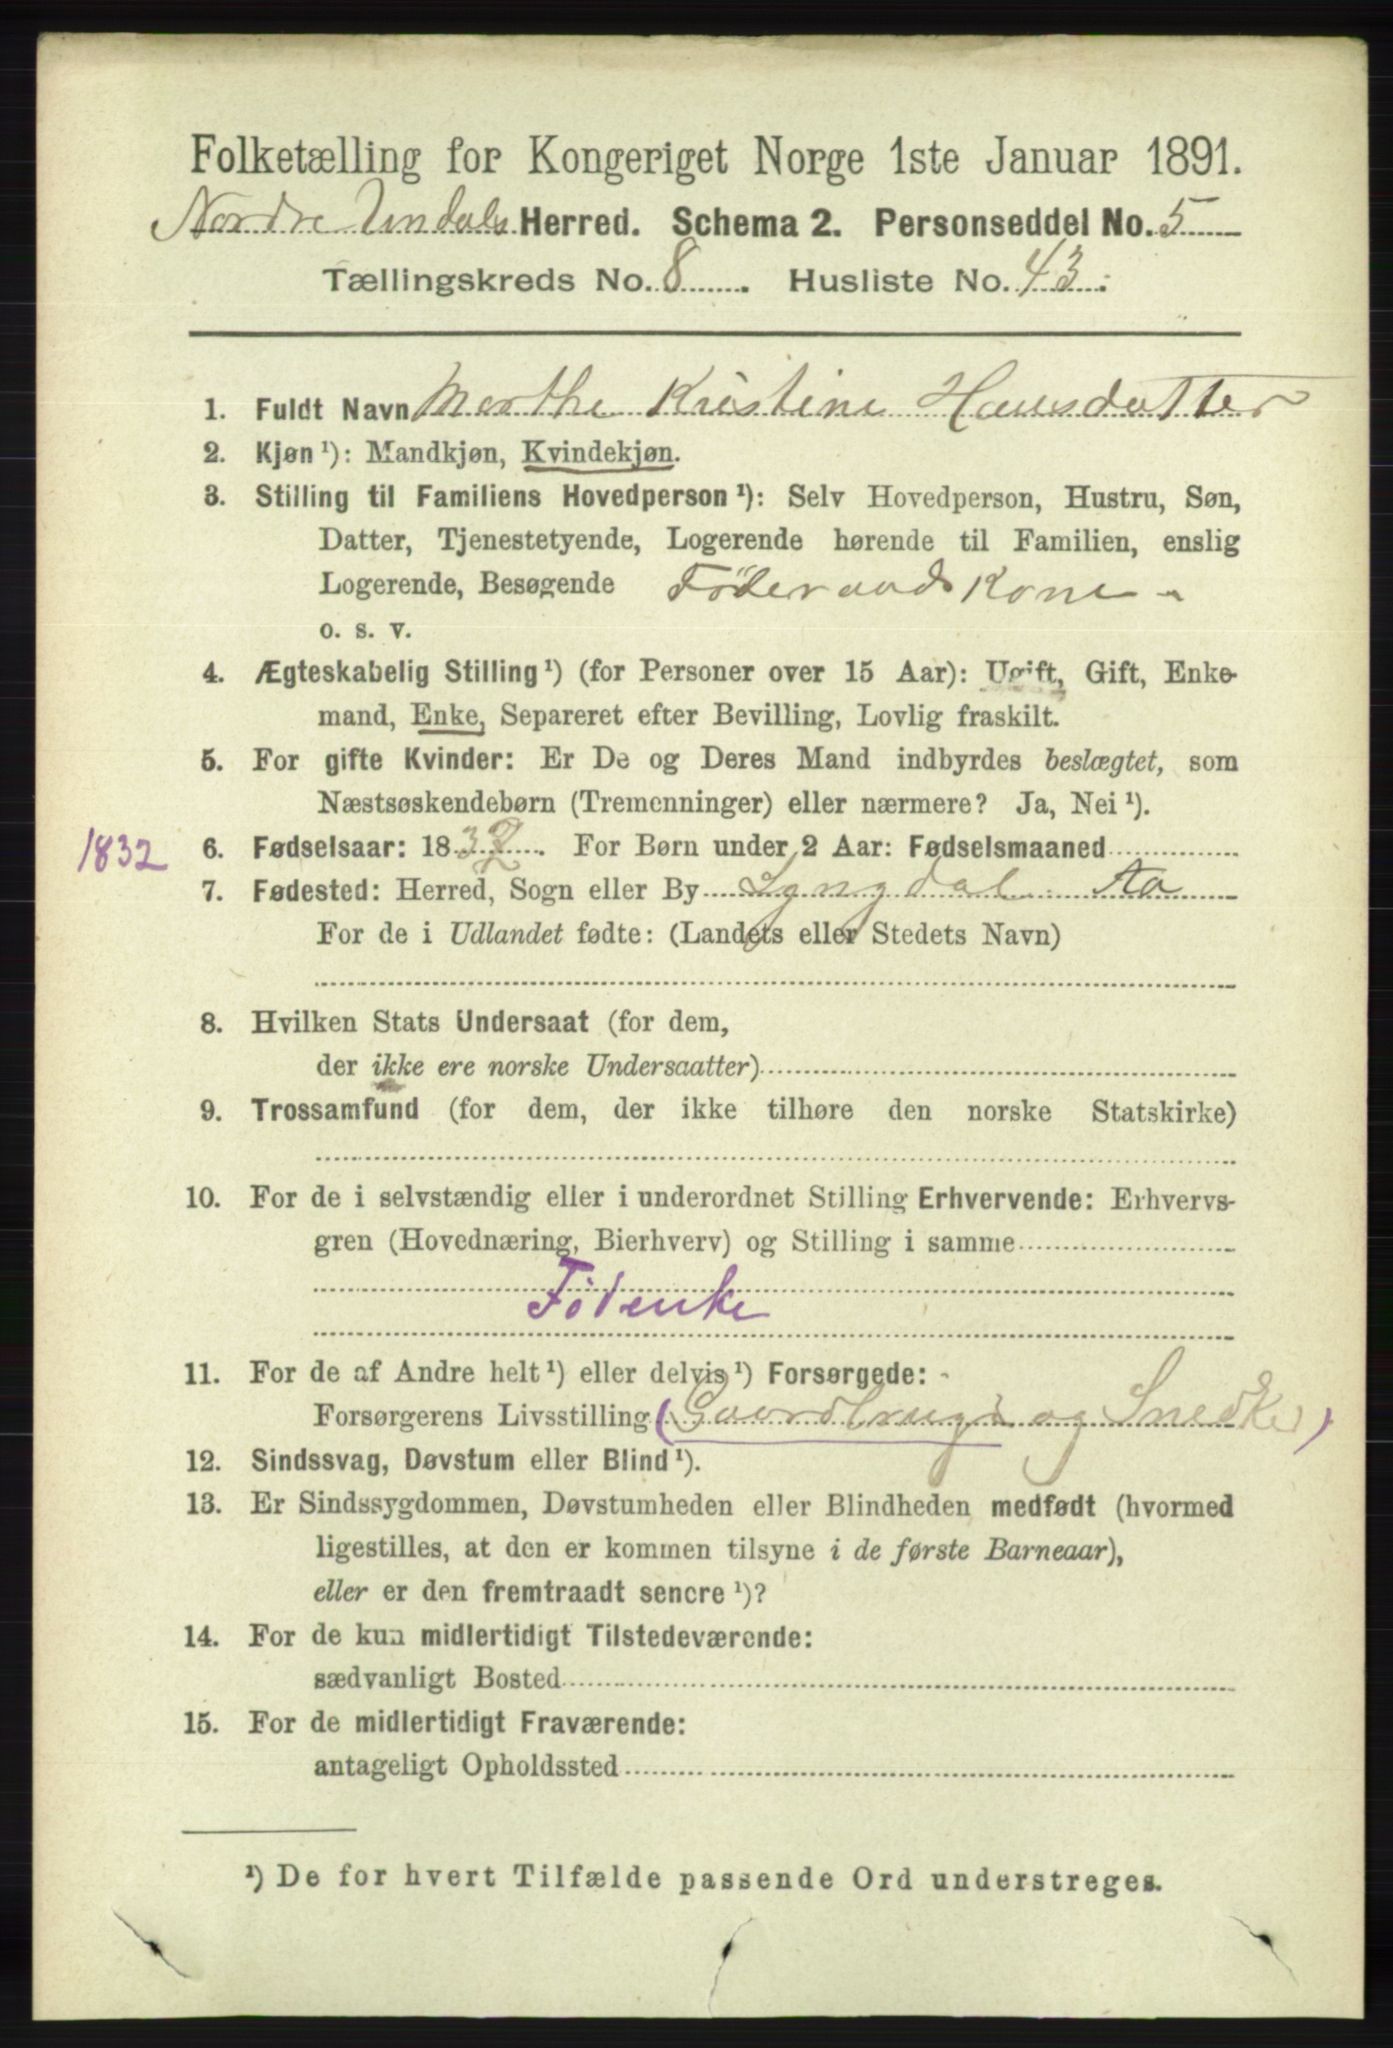 Folketælling for Kongeriget Norge 1ste Januar 1891.
Nordre Undals Herred. Schema 2. Personseddel No. 5
Tællingskreds No. 8. Husliste No. 43.
1. Fuldt Navn Marthe Kristine Hansdatter
2. Kjøn ¹): Mandkjøn, Kvindekjøn.
3. Stilling til Familiens Hovedperson ¹): Selv Hovedperson, Hustru, Søn,
Datter, Tjenestetyende, Logerende hørende til Familien, enslig
Logerende, Besøgende Føderaads Kone
o. s. v.
4. Ægteskabelig Stilling ¹) (for Personer over 15 Aar): Ugift, Gift, Enke-
mand, Enke, Separeret efter Bevilling, Lovlig fraskilt.
5. For gifte Kvinder: Er De og Deres Mand indbyrdes beslægtet, som
Næstsøskendebørn (Tremenninger) eller nærmere? Ja, Nei ¹).
1832 6. Fødselsaar: 1832. For Børn under 2 Aar: Fødselsmaaned
7. Fødested: Herred, Sogn eller By Lyngdal Aa
For de i Udlandet fødte: (Landets eller Stedets Navn)
8. Hvilken Stats Undersaat (for dem,
der ikke ere norske Undersaatter)
9. Trossamfund (for dem, der ikke tilhøre den norske Statskirke)
10. For de i selvstændig eller i underordnet Stilling Erhvervende: Erhvervs-
gren (Hovednæring, Bierhverv) og Stilling i samme
Fødenke
11. For de af Andre helt ¹) eller delvis ¹) Forsørgede:
Forsørgerens Livsstilling (Gaardbruger og Snedker)
12. Sindssvag, Døvstum eller Blind ¹).
13. Er Sindssygdommen, Døvstumheden eller Blindheden medfødt (hvormed
ligestilles, at den er kommen tilsyne i de første Barneaar),
eller er den fremtraadt senere ¹)?
14. For de kun midlertidigt Tilstedeværende:
sædvanligt Bosted
15. For de midlertidigt Fraværende:
antageligt Opholdssted
¹) De for hvert Tilfælde passende Ord understreges.